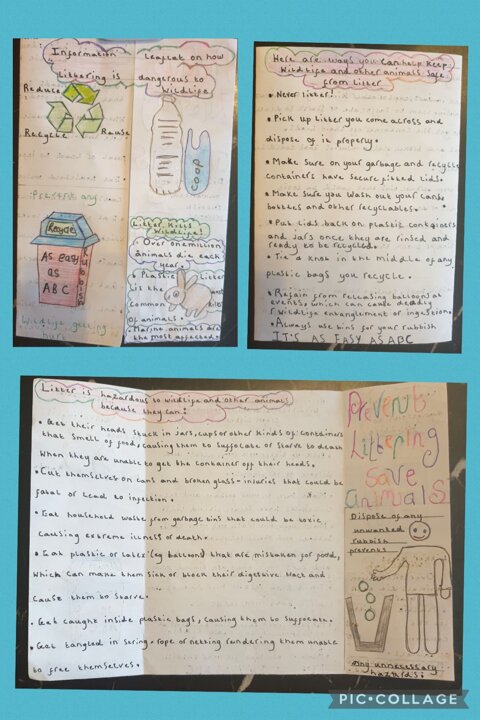 Information
Littering is
Reduce
Recycle
Reuse
Prevent any
Recycle
As easy
as
ABC
Rubbish
Wildlife getting
hurt
Leaflet on how
dangerous to
Wildlife
coop
Litter Kills
Wildlife!
• Over one million
animals die each
year.
• Plastic Litter
is the most
common
of animals.
• Marine animals are
the most affected.
Here are ways you can help keep
Wildlife and other animals safe
from Litter
• Never litter!
• Pick up litter you come across and
dispose of it properly.
• Make sure on your garbage and recycle
containers have secure fitted lids.
• Make sure you wash out your cans
bottles and other recyclables.
• Put lids back on plastic containers
and jars once they are rinsed and
ready to be recycled.
• Tie a knob in the middle of any
plastic bags you recycle.
• Refrain from releasing balloons at
events, which can cause deadly
wildlife entanglement or ingestion.
• Always use bins for your rubbish
IT'S AS EASY AS ABC
Litter is hazardous to wildlife and other animals
because they can:
• Get their heads stuck in jars, cups or other kinds of containers
that smell of food, causing them to suffocate or starve to death
when they are unable to get the container off their heads.
• Cut themselves on cans and broken glass - injuries that could be
fatal or lead to infection.
• Eat household waste from garbage bins that could be toxic,
causing extreme illness or death.
• Eat plastic or latex (eg balloons) that are mistaken for food,
which can make them sick or block their digestive tract and
cause them to starve.
• Get caught inside plastic bags, causing them to suffocate.
• Get tangled in string, rope or netting rendering them unable
to free themselves.
Prevent
Littering
Save
animals
Dispose of any
unwanted
rubbish
prevents
any unnecessary
hazards.
PIC•COLLAGE